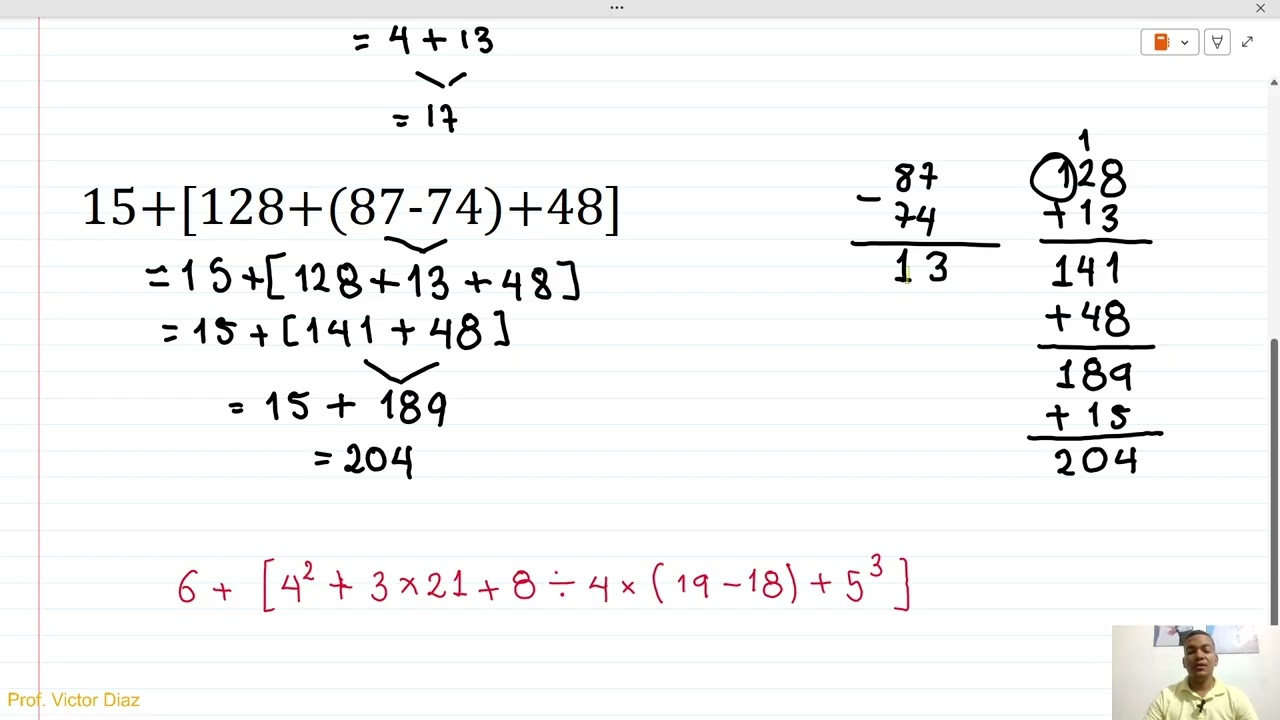 = 4 + 13
= 17
15+[128+(87-74)+48]
= 15 + [128 + 13 + 48]
= 15 + [141 + 48]
= 15 + 189
= 204
87
- 74
13
1
128
+ 13
141
+ 48
189
+ 15
204
6 + [4² + 3 × 21 + 8 ÷ 4 × (19 - 18) + 5³]
Prof. Victor Diaz